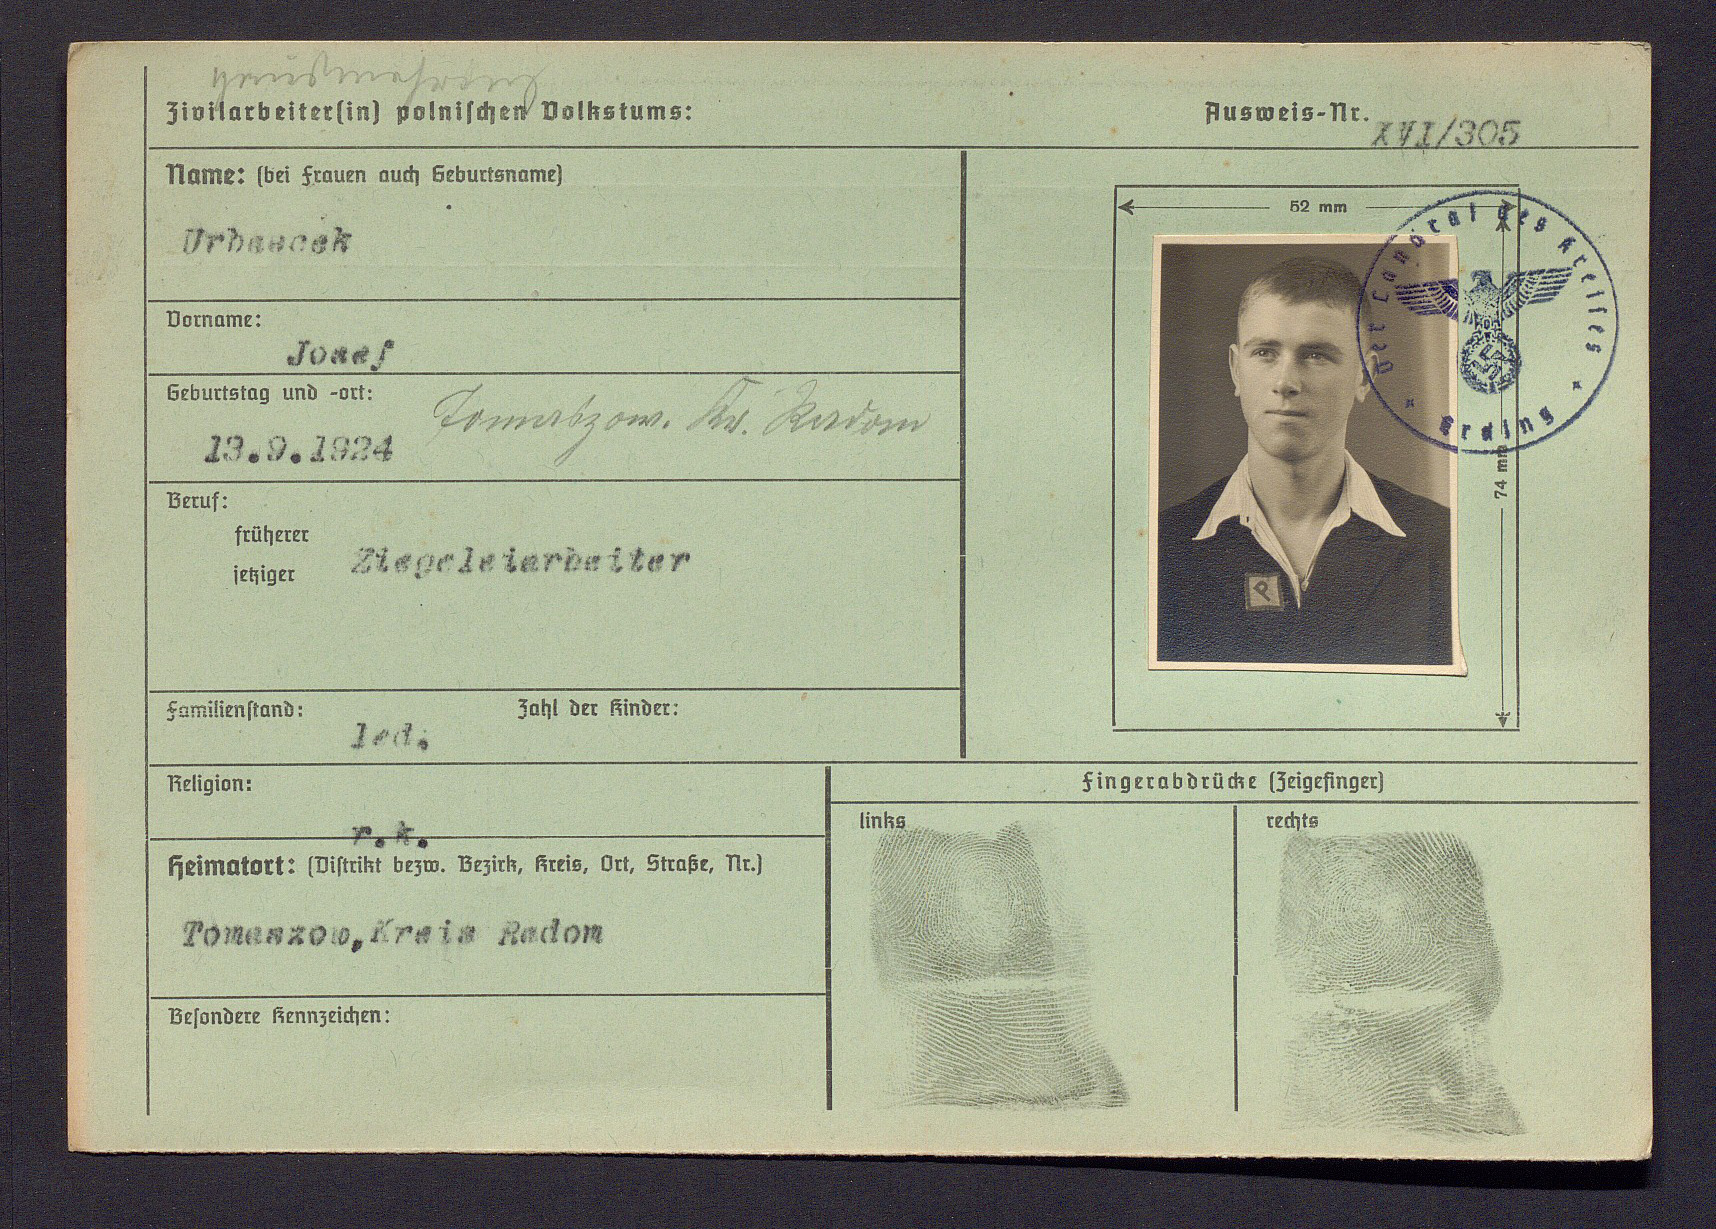 Zivilarbeiter(in) polnischen Volkstums:
Ausweis-Nr. XVI/305
Name: (bei Frauen auch Geburtsname)
52 mm
Der Landrat des Kreises
Josef
Vorname:
Geburtstag und -ort:
Tomaszow. Kr. Radom
13.9.1924
Erding
74 mm
Beruf:
früherer
jetziger
Ziegeleiarbeiter
P
Familienstand:
led.
Zahl der Kinder:
Religion:
r.k.
Fingerabdrücke (Zeigefinger)
links
rechts
Heimatort: (Distrikt bezw. Bezirk, Kreis, Ort, Straße, Nr.)
Tomaszow, Kreis Radom
Besondere Kennzeichen: